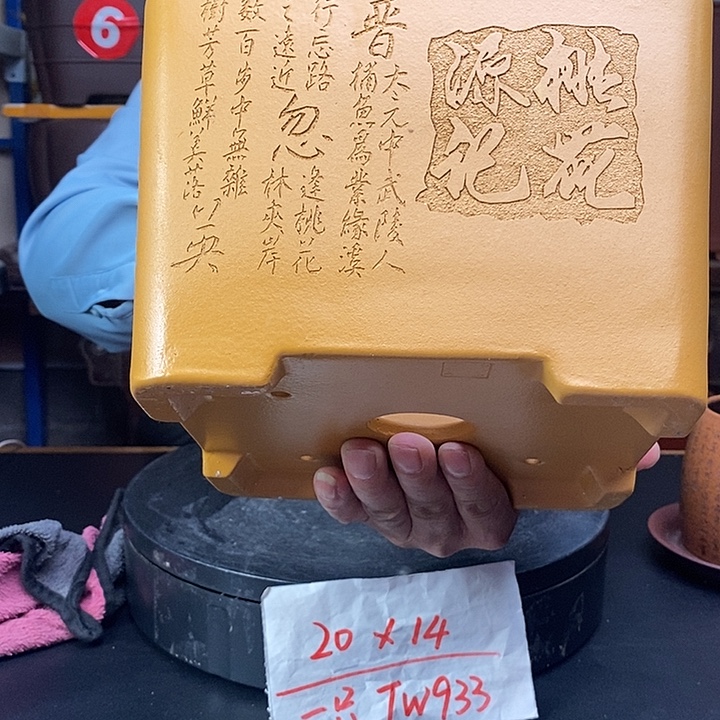 6
桃花
源记
晋
太元中武陵人
捕魚為業緣溪
行忘路
之遠近
忽
逢桃花
林夾岸
數百步中無雜
樹芳草鮮美落英
20 x 14
一只 TW933